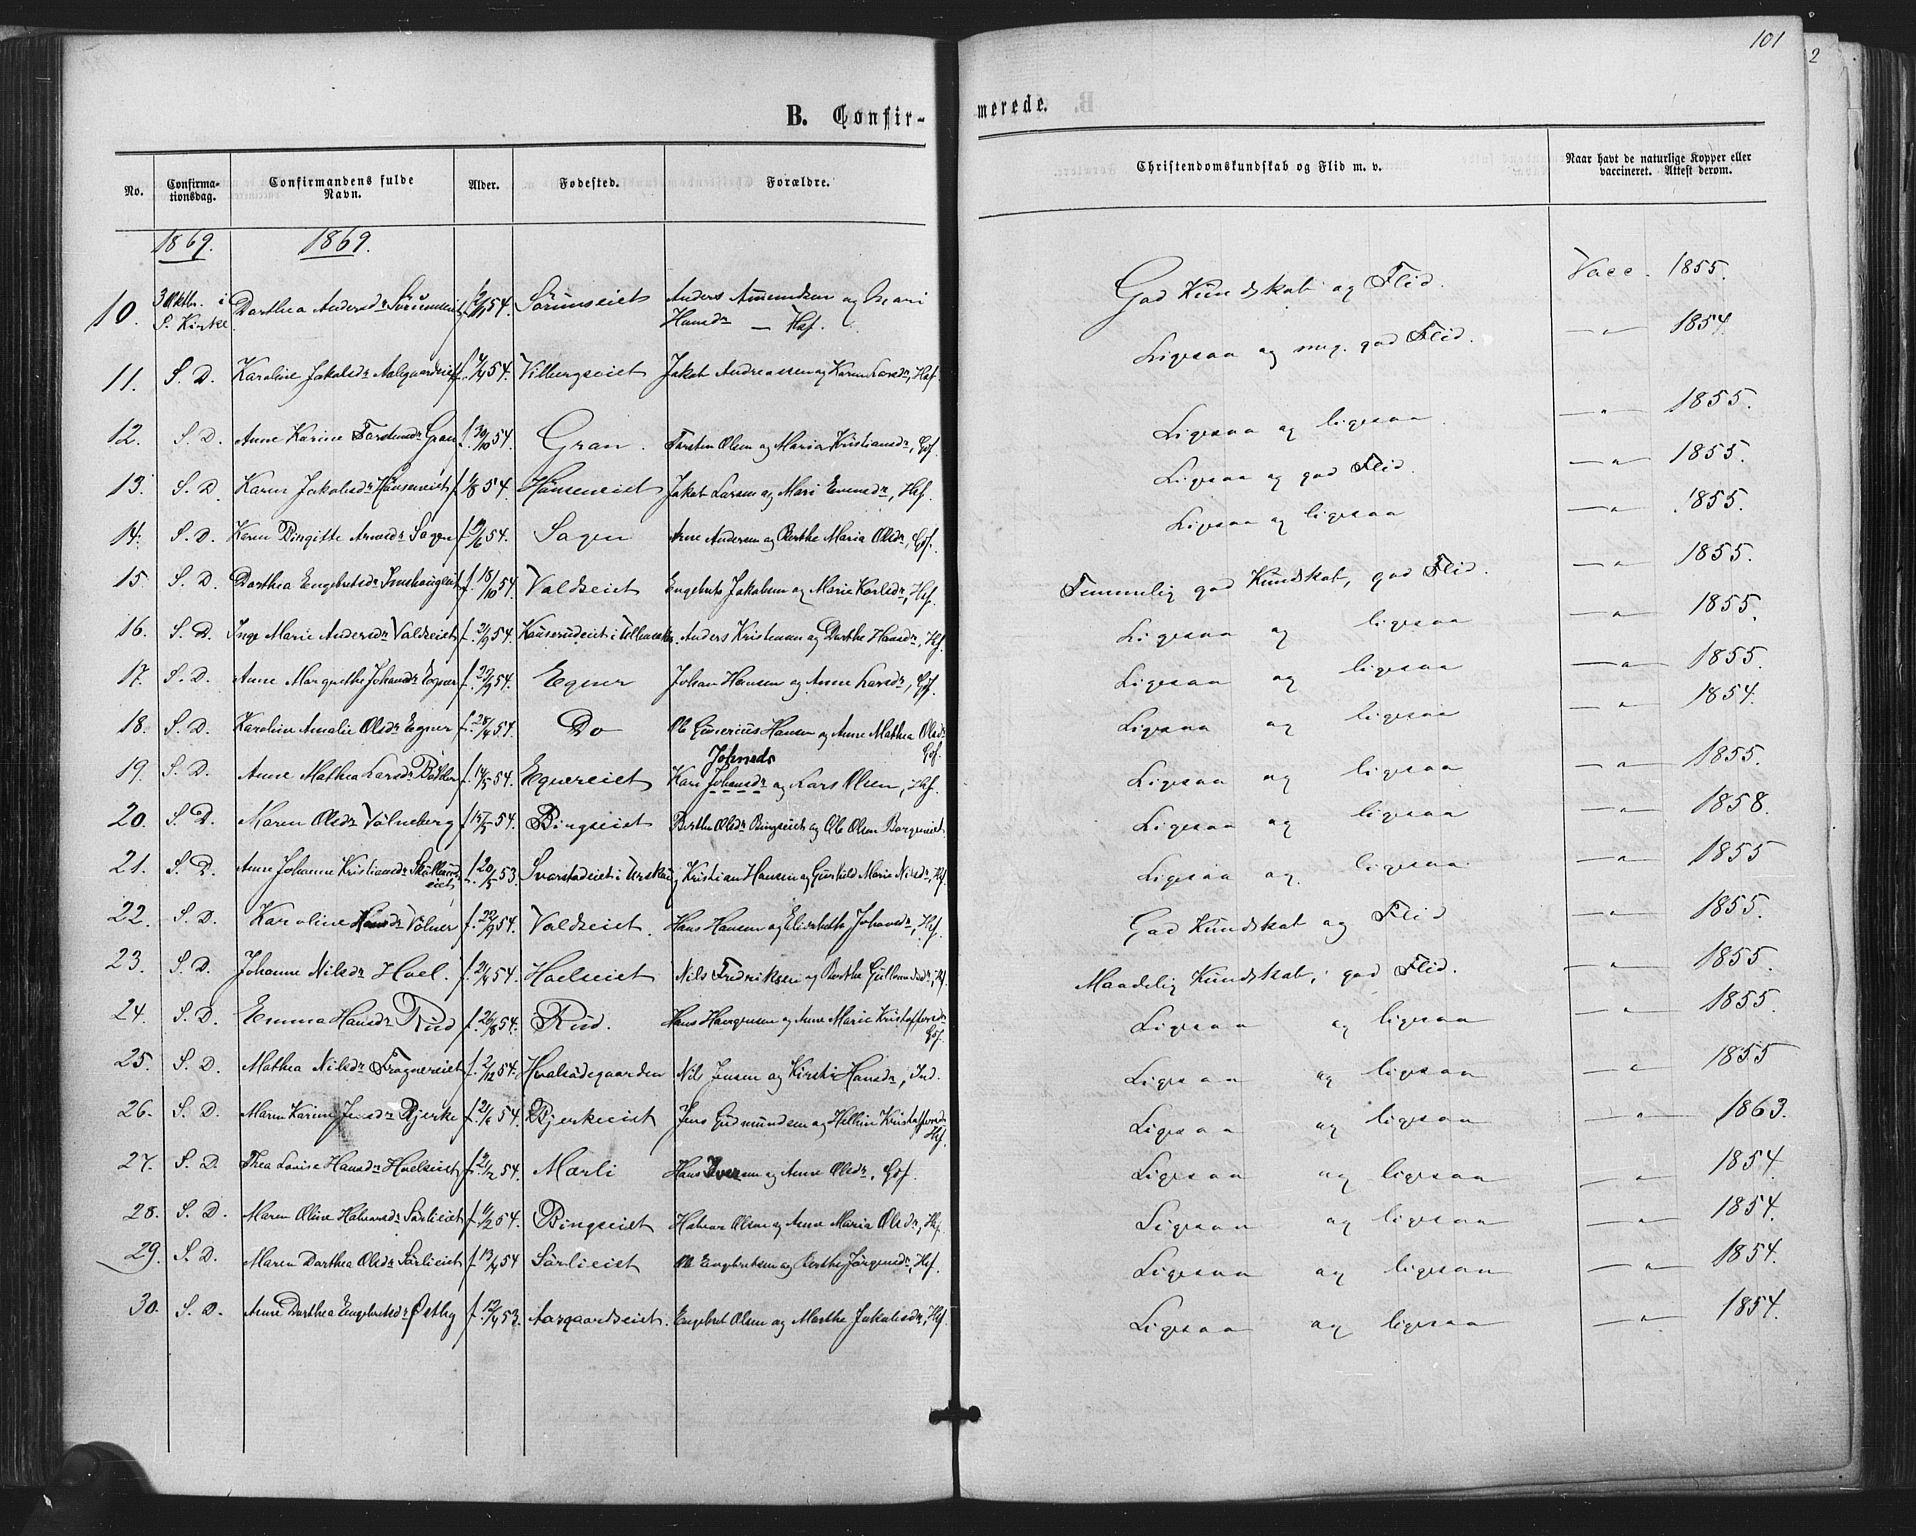 101
2
B. Confir-
merede.
No. Confirma-tionsdag. Confirmandens fulde Navn. Alder. Fødested. Forældre. Christendomskundskab og Flid m. v. Naar havt de naturlige Kopper eller vaccineret. Attest derom.
1869. 1869.
10. 3 Oktbr. i S. Kirke Dorthea Andersdr Sörumeiet 54. Sörumseiet Anders Amundsen og Mari Hansdr — Hsf. God Kundskab og Flid. Vacc. 1855.
11. S. D. Karoline Jakobsdr Aalgaardseiet 54. Vilbergseiet Jakob Andreassen og Karen Larsdr, Hsf. Ligesaa og meg. god Flid. — " — 1854
12. S. D. Anne Karine Torstensdr Gran f. 30/10 54. Gran. Torsten Olsen og Maria Kristiansdr, Gbf. Ligesaa og ligesaa. — " — 1855.
13. S. D. Karen Jakobsdr Hönseneiet f. 54. Hönseneiet Jakob Larsen og Mari Evensdr, Hsf. Ligesaa og god Flid. — " — 1855.
14. S. D. Karen Birgitte Arnesdr Sagen f. 54. Sagen Arne Andersen og Berthe Maria Olsdr, Gbf. Ligesaa og ligesaa — " — 1855.
15. S. D. Dorthea Engebretsdr f. 18/10 54. Valdseiet Engebret Jakobsen og Marie Karlsdr, Hsf. Temmelig god Kundskab, god Flid. — " — 1855.
16. S. D. Inge Marie Andersdr Valdseiet f. 54. Kauserudeiet i Ullensaker. Anders Kristensen og Dorthe Hansdr, Hsf. Ligesaa og ligesaa — " — 1855.
17. S. D. Anne Margrethe Johansdr Egner f. 54. Egner Johan Hansen og Anne Larsdr, Gbf. Ligesaa og ligesaa — " — 1855.
18. S. D. Karoline Amalie Olsdr Egner f. 28/4 54. Do Ole Gunerius Hansen og Anne Mathea Olsdr Gbf. Ligesaa og ligesaa — " — 1854.
19. S. D. Anne Mathea Larsdr Bödker f. 14/5 54. Egnereiet Kari Johansdr Johnsdr og Lars Olsen, Hsf. Ligesaa og ligesaa — " — 1855.
20. S. D. Maren Olsdr Volneberg f. 54. Bingseiet Berthe Olsdr Bingseiet og Ole Olsen Borgeneiet Ligesaa og ligesaa — " — 1858.
21. S. D. Anne Johanne Kristiansdr f. 20/5 53. Svarstadeiet i Urskoug Kristian Hansen og Gunhild Marie Nilsdr, Hsf. Ligesaa og ligesaa — " — 1855
22. S. D. Karoline Hansdr Volner f. 22/9 54. Valdseiet. Hans Hansen og Elisabeth Johansdr, Hsf. God Kundskab og Flid — " — 1855.
23. S. D. Johanne Nilsdr Hoel. f. 21/4 54. Hoelseiet Nils Fredriksen og Berthe Gulbrandsdr, Hsf. Maadelig Kundskab, god Flid. — " — 1855.
24. S. D. Emma Hansdr Rud f. 26/8 54. Rud. Hans Haagensen og Anne Marie Kristoffersdr Gbf. Ligesaa og ligesaa — " — 1855.
25. S. D. Mathea Nilsdr Frognereiet f. 2/12 54. Hvalsödegaarden Nils Jensen og Kirsti Hansdr, Ind. Ligesaa og ligesaa — " — 1855
26. S. D. Maren Karine Jensdr Bjerke f. 54. Bjerkeeiet Jens Gudmundsen og Helline Kristoffersdr Hsf. Ligesaa og ligesaa — " — 1863.
27. S. D. Thea Lovise Hansdr Hoelseiet f. 54. Mærli Hans Iversen og Anne Olsdr, Gbf. Ligesaa og ligesaa — " — 1854.
28. S. D. Maren Oline Halvorsdr Sörlieiet f. 54. Bingseiet Halvor Olsen og Anne Maria Olsdr, Hsf. Ligesaa og ligesaa — " — 1854.
29. S. D. Maren Dorthea Olsdr Sörlieiet f. 13/4 54 Sörlieiet Ole Engebretsen og Berthe Jørgensdr, Hsf. Ligesaa og ligesaa — " — 1854.
30. S. D. Anne Dorthea Engebretsdr Østby f. 12/4 53. Aargaardseiet. Engebret Olsen og Marthe Jakobsdr, Hsf. Ligesaa og ligesaa — " — 1854.